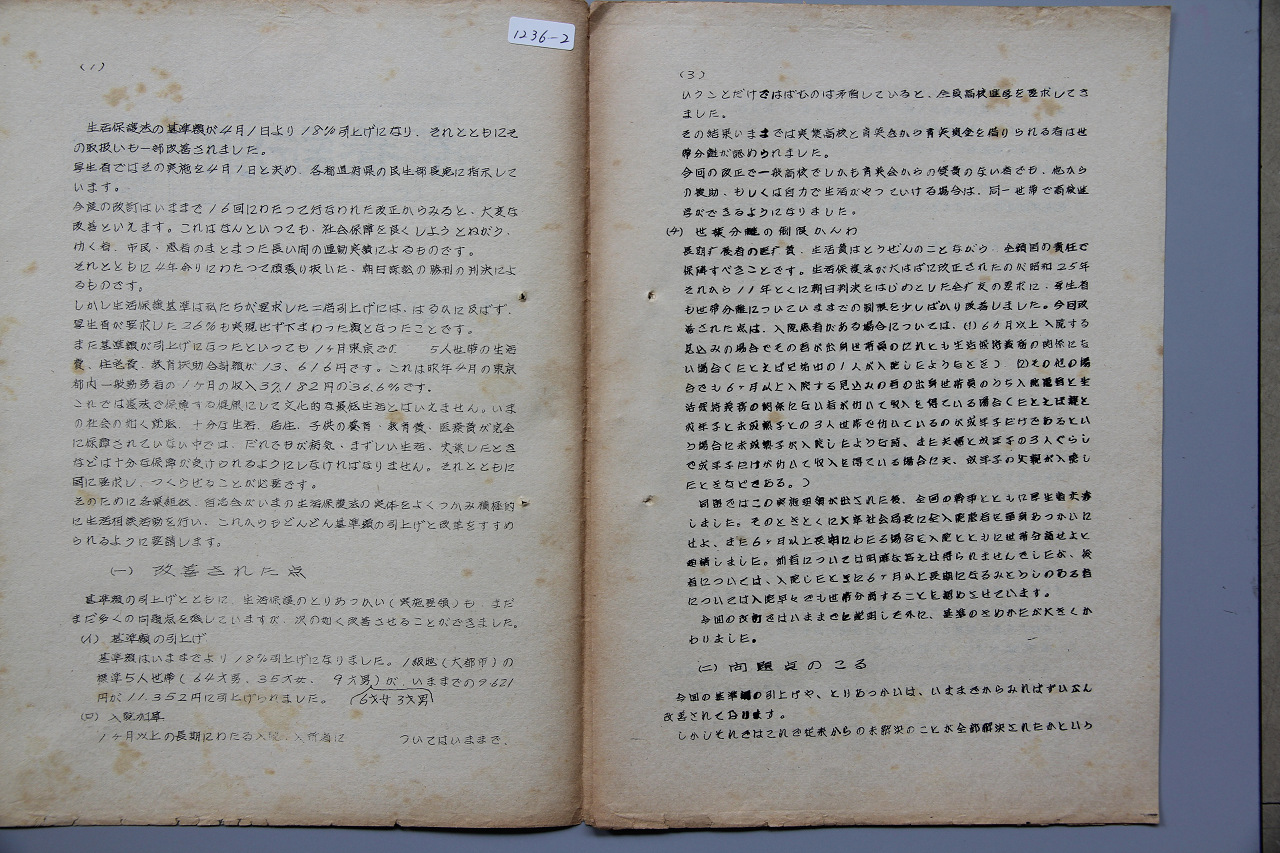 1236-2
(1)
生活保護法の基準額が4月1日より18%引上げになり、それとともにそ
の取扱いも一部改善されました。
厚生省ではその実施を4月1日と決め、各都道府県の民生部長宛に指示して
います。
今度の改訂はいままで16回にわたって行なわれた改正からみると、大変な
改善といえます。これはなんといっても、社会保障を良くしようとねがう、
仂く者、市民・患者のまとまった長い間の運動実績によるものです。
それとともに4年余りにわたって頑張り抜いた、朝日訴訟の勝利の判決によ
るものです。
しかし生活保護基準は私たちが要求した二倍引上げには、はるかに及ばず、
厚生省が要求した26%も実現せず下まわった額となったことです。
また基準額が引上げになったといっても1ヶ月東京での 5人世帯の生活
費、住宅費、教育扶助合計額が13,616円です。これは昨年4月の東京
都内一般勤労者の1ヶ月の収入37,182円の36.6%です。
これでは憲法で保障する健康にして文化的な最低生活とはいえません。いま
の社会の如く賃金、十分な生活、居住、子供の養育・教育費、医療費が完全
に保障されていない中では、だれでもが病気、まずしい生活、失業したとき
などは十分な保障が受けられるようにしなければなりません。それとともに
国に要求し、つくらせることが必要です。
そのために各業組合、自治会がいまの生活保護法の実体をよくつかみ積極的
に生活相談活動を行い、これからもどんどん基準額の引上げと改革をすすめ
られるように要請します。
(一) 改善された点
基準額の引上げとともに、生活保護のとりあつかい(実施要領)も、まだ
まだ多くの問題点を残していますが、次の如く改善させることができました。
(イ) 基準額の引上げ
基準額はいままでより18%引上げになりました。1級地(大都市)の
標準5人世帯(64才男、35才女、9才男)が、いままでの9.621
円が11.352円に引上げられました。 (6才女 3才男)
(ロ) 入院加算
1ヶ月以上の長期にわたる入院、入所者に ついてはいままで、
(3)
いクンとだけではばむのは矛盾していると、全員高校進学を要求してき
ました。
その結果いままでは実業高校と育英会から育英資金を借りられる者は世
帯分離が認められました。
今回の改正で一般高校でしかも育英会からの奨費のない者でも、他から
の援助、もしくは自力で生活がやっていける場合は、同一世帯で高校進
学ができるようになりました。
(チ) 世帯分離の制限かんわ
長期療養者の医療費、生活費はとうぜんのことながら、全額国の責任で
保障すべきことです。生活保護法が大はばに改正されたのが昭和25年
それから11年とくに朝日判決をはじめとした会療友の要求に、厚生省
も世帯分離についていままでの制限を少しばかり改善しました。今回改
善された点は、入院患者がある場合については、(1)6ヶ月以上入院する
見込みの場合でその者が出身世帯員のいずれとも生活保持義務の関係にな
い場合(たとえば兄姉の1人が入院したようなとき) (2)その他の場
合でも6ヶ月以上入院する見込みの者の出身世帯員のうち入院患者と生
活保持義務の関係にない者が仂いて収入を得ている場合(たとえば親と
成年子と未成熟子との3人世帯で仂いているのが成年子だけであるとい
う場合に未成熟子が入院したような時、また夫婦と成年子の3人ぐらし
で成年子だけが仂いて収入を得ている場合に夫、成年子の実親が入院し
たときなどである。)
同盟ではこの実施要領が出された後、全国の幹事とともに厚生省交渉
しました。そのときとくに大山社会局長に全入院患者を単身あつかいに
せよ、また6ヶ月以上長期にわたる場合を入院とともに世帯分離せよと
要請しました。前者については明確な答えは得られませんでしたが、後
者については、入院したときに6ヶ月以上長期になるみとうしのある者
については入院早々でも世帯分離することを認めさせています。
今回の改訂ではいままでに説明した外に、基準のきめかたが大きくか
わりました。
(二) 問題点のこる
今回の基準額の引上げや、とりあつかいは、いままでからみればずいぶん
改善されております。
しかしそれではこれで従来からの未解決のことが全部解決されたかという